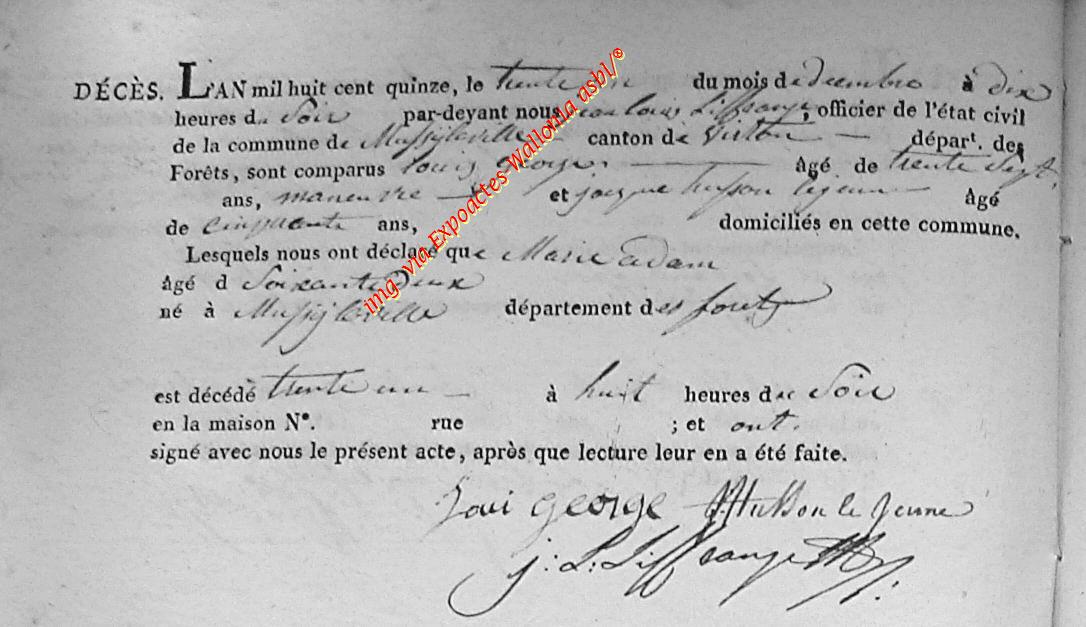 DÉCÈS. L'AN mil huit cent quinze, le trente un du mois de decembre à dix
heures du Soir par-devant nous jean louis Liffrange, officier de l'état civil
de la commune de Mussylaville canton de Virton — départ. des
Forêts, sont comparus louis george. — âgé de trente Sept
ans, maneuvre — et jacque husson le jeune âgé
de cinquante ans, domiciliés en cette commune.
Lesquels nous ont déclaré que Marie adam
âgé d Soixante Deux
né à Mussylaville département des foret
est décédé trente un — à huit heures du Soir
en la maison N°. rue ; et ont.
signé avec nous le présent acte, après que lecture leur en a été faite.
Loui george J Husson le Jeune
j: L: Liffrange
img via Expoactes Wallonia asbl/®